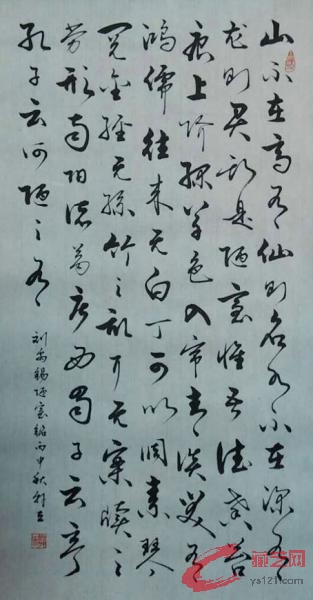 山不在高有仙则名水不在深有
龙则灵斯是陋室惟吾德馨苔
痕上阶绿草色入帘青谈笑有
鸿儒往来无白丁可以调素琴
阅金经无丝竹之乱耳无案牍之
劳形南阳诸葛庐西蜀子云亭
孔子云何陋之有
刘禹锡陋室铭丙申秋
ys121.com